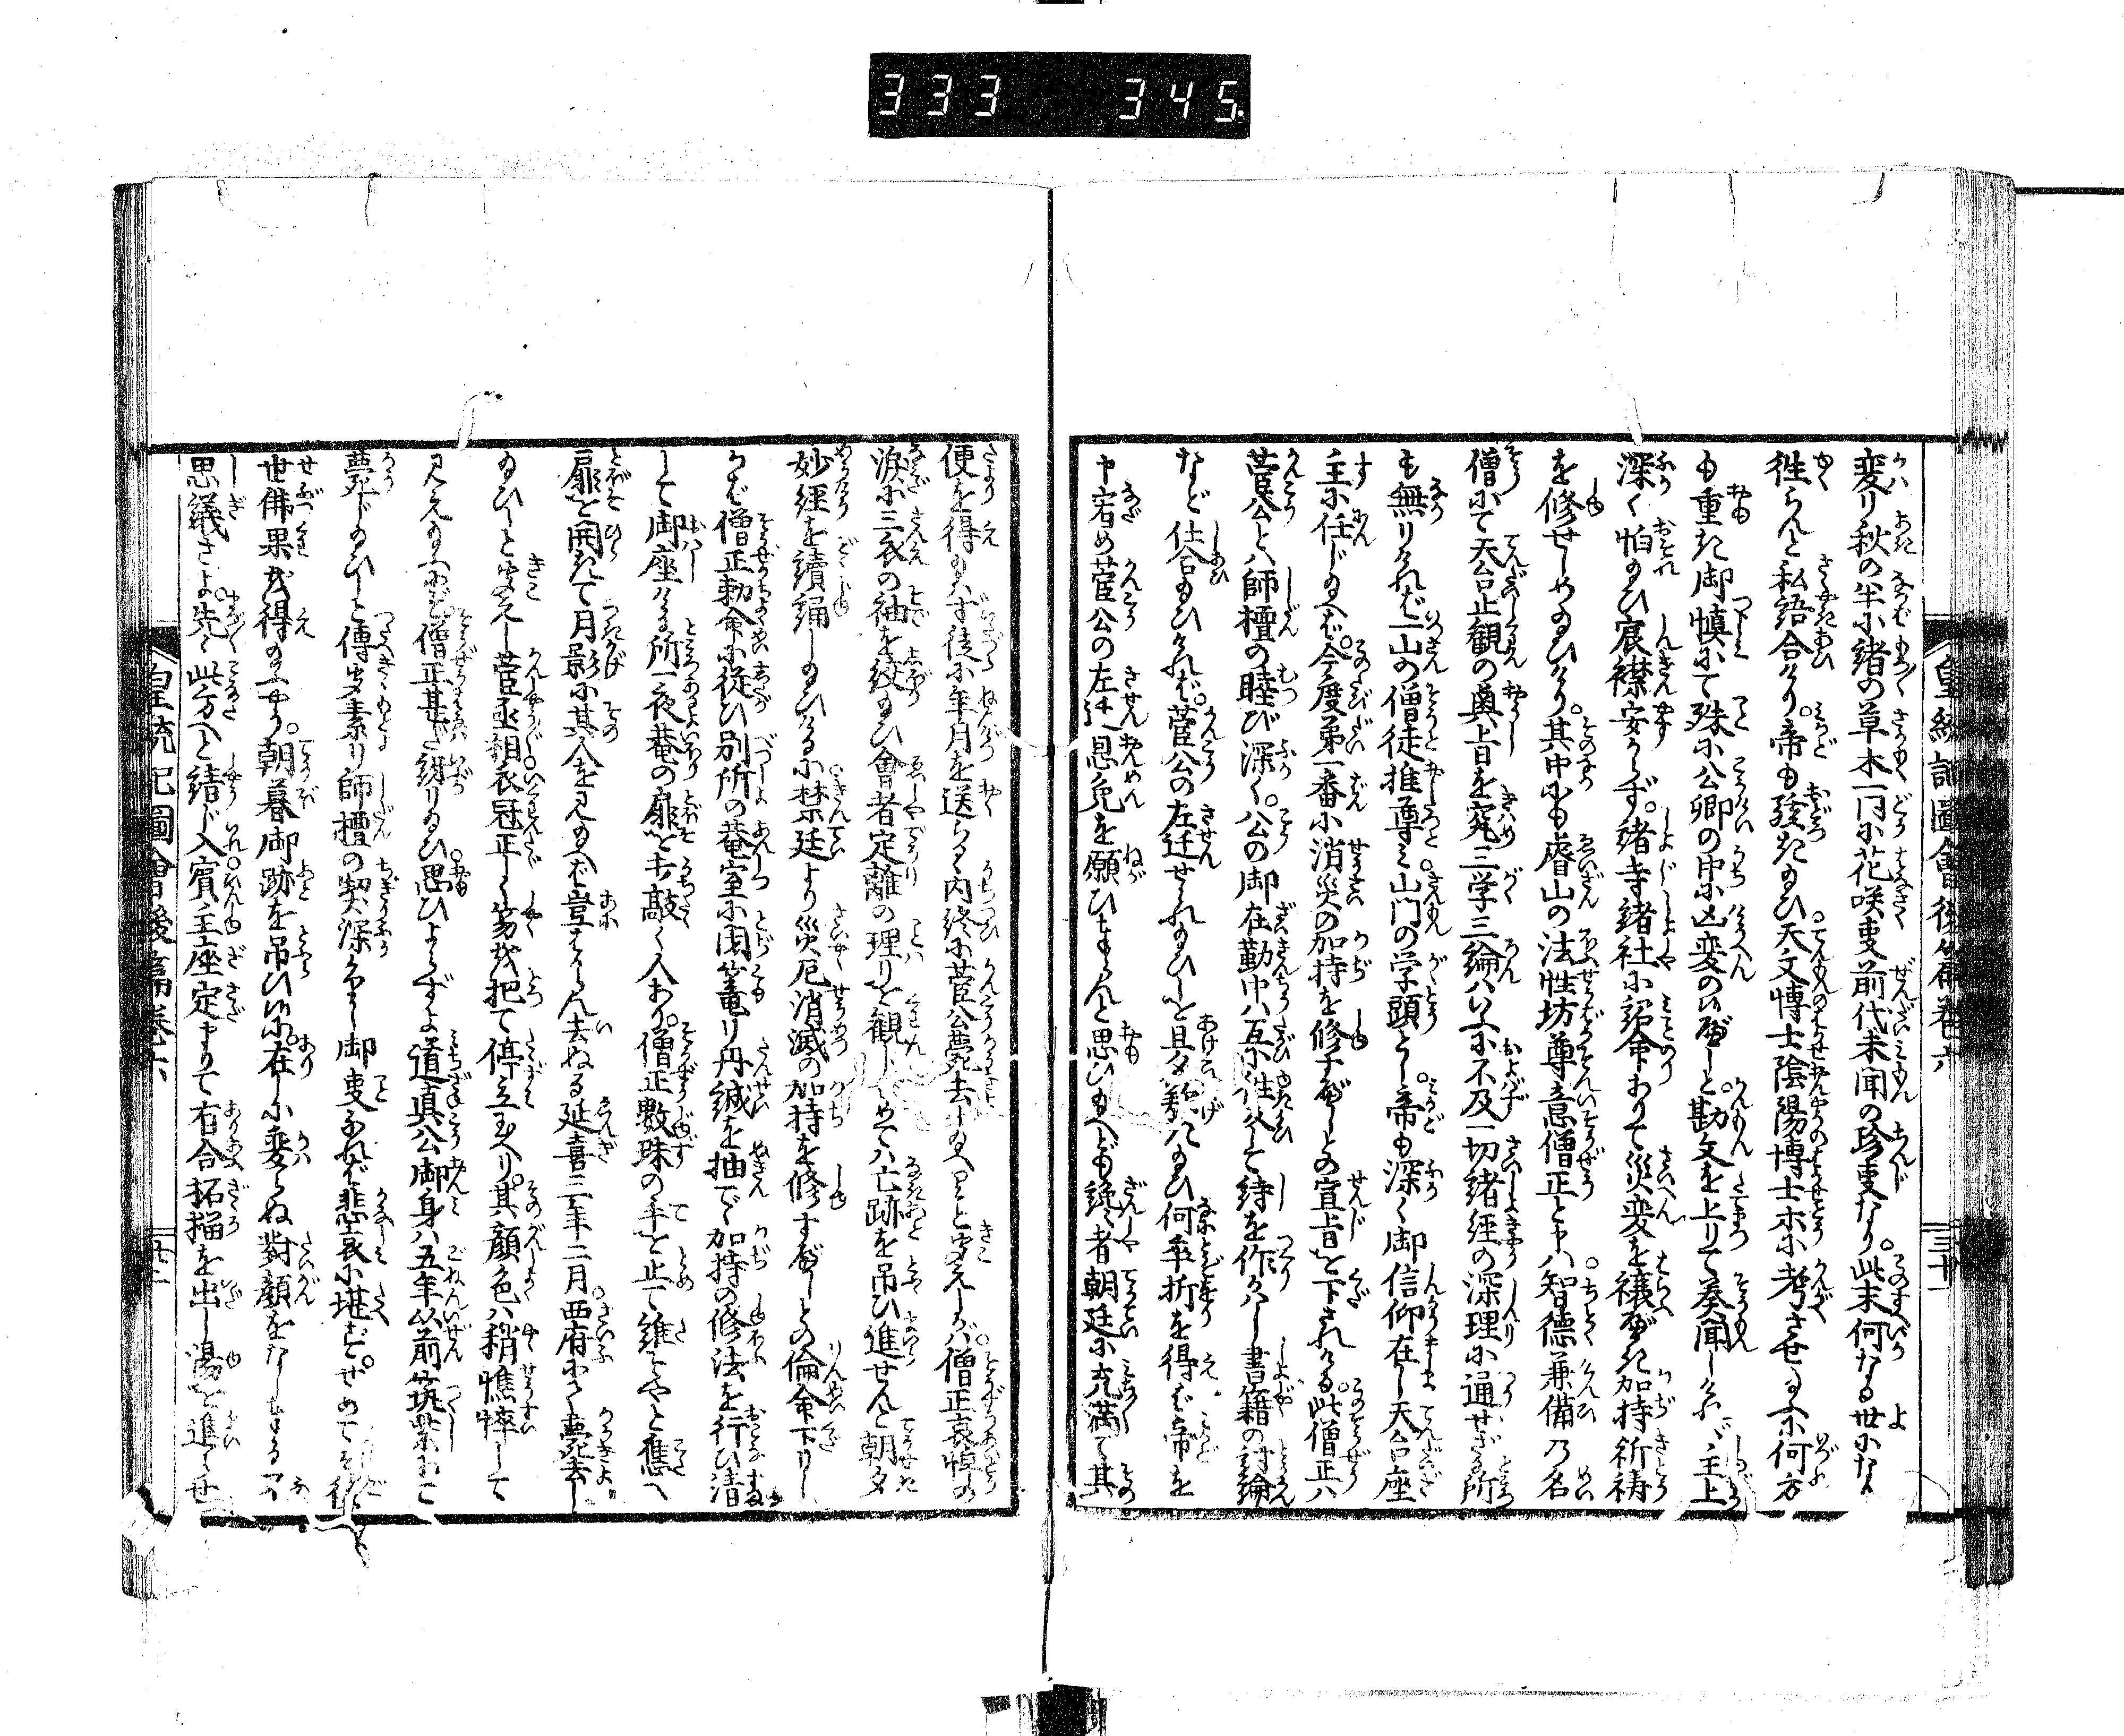 333 345
皇統記圖會後篇巻六 三十一
変り秋の半に諸の草木一同に花咲叓前代未聞の珍叓なり。此末何なる世にな
徃らんと私語合けり。帝も駭き給ひ天文博士陰陽博士ホに考させ給ふに何方
も重き御慎にて殊に公卿の中に凶変の候べしと勘文を上りて奏聞しけれバ主上
深く怕給ひ宸襟安からず。諸寺諸社に詔命ありて災変を禳べき加持祈祷
を修せしめ給ひけり。其中にも睿山の法性坊尊意僧正と申ハ智徳兼備乃名
僧にて天台止観の奥旨を究三学三論ハいふに不及一切諸経の深理に通せざる所
も無りけれバ一山の僧徒推尊ミ山門の学頭とし。帝も深く御信仰在し天台座
主に任じ給へバ。今度第一番に消災の加持を修すべしとの宣旨を下されける。此僧正ハ
菅公とハ師檀の睦び深く。公の御在勤中ハ互に徃来て詩を作かハし書籍の討論
など仕合給ひけれバ。菅公の左迁せられ給ひしを旦夕歎き給ひ何卒折を得バ帝を
申宥め菅公の左迁恩免を願ひまゐらんと思ひ給へども讒者朝廷に充満て其
便を得給ハず徒に年月を送らるゝ内終に菅公薨去し給へりと聞えしかバ。僧正哀悼の
涙に三衣の袖を絞給ひ會者定離の理りを観じせめてハ亡跡を吊ひ進せんと朝夕
妙経を讀誦し給ひけるに禁廷より災厄消滅の加持を修すべしとの倫命下りし
かバ僧正勅命に従ひ別所の菴室に閉篭り丹誠を抽で加持の修法を行ひ清
して御座ける所一夜菴の扉を打敲く人あり。僧正數珠の手を止て誰そやと應へ
扉を開きて月影に其人を見給へバ豈はからん去ぬる延喜三年二月西府にて薨去し
給ひしと聞えし菅丞相衣冠正しく笏を把て停立玉へり。其顔色ハ稍憔悴して
見え給ふにぞ僧正甚ざ訝り給ひ。思ひよらずよ道真公御身ハ五年以前筑紫にて
薨じ給ひしと傳聞素り師檀の契深かりし御叓なれバ悲哀に堪ず。せめてそ後
世佛果を得給へかし。朝暮御跡を吊ひしに。在しに変らぬ對顔をなしまゐるこそ
思議さよ。先々此方へと結じ入賓主座定まりて有合拓榴を出し湯を進らせ
皇統記圖會後篇巻六